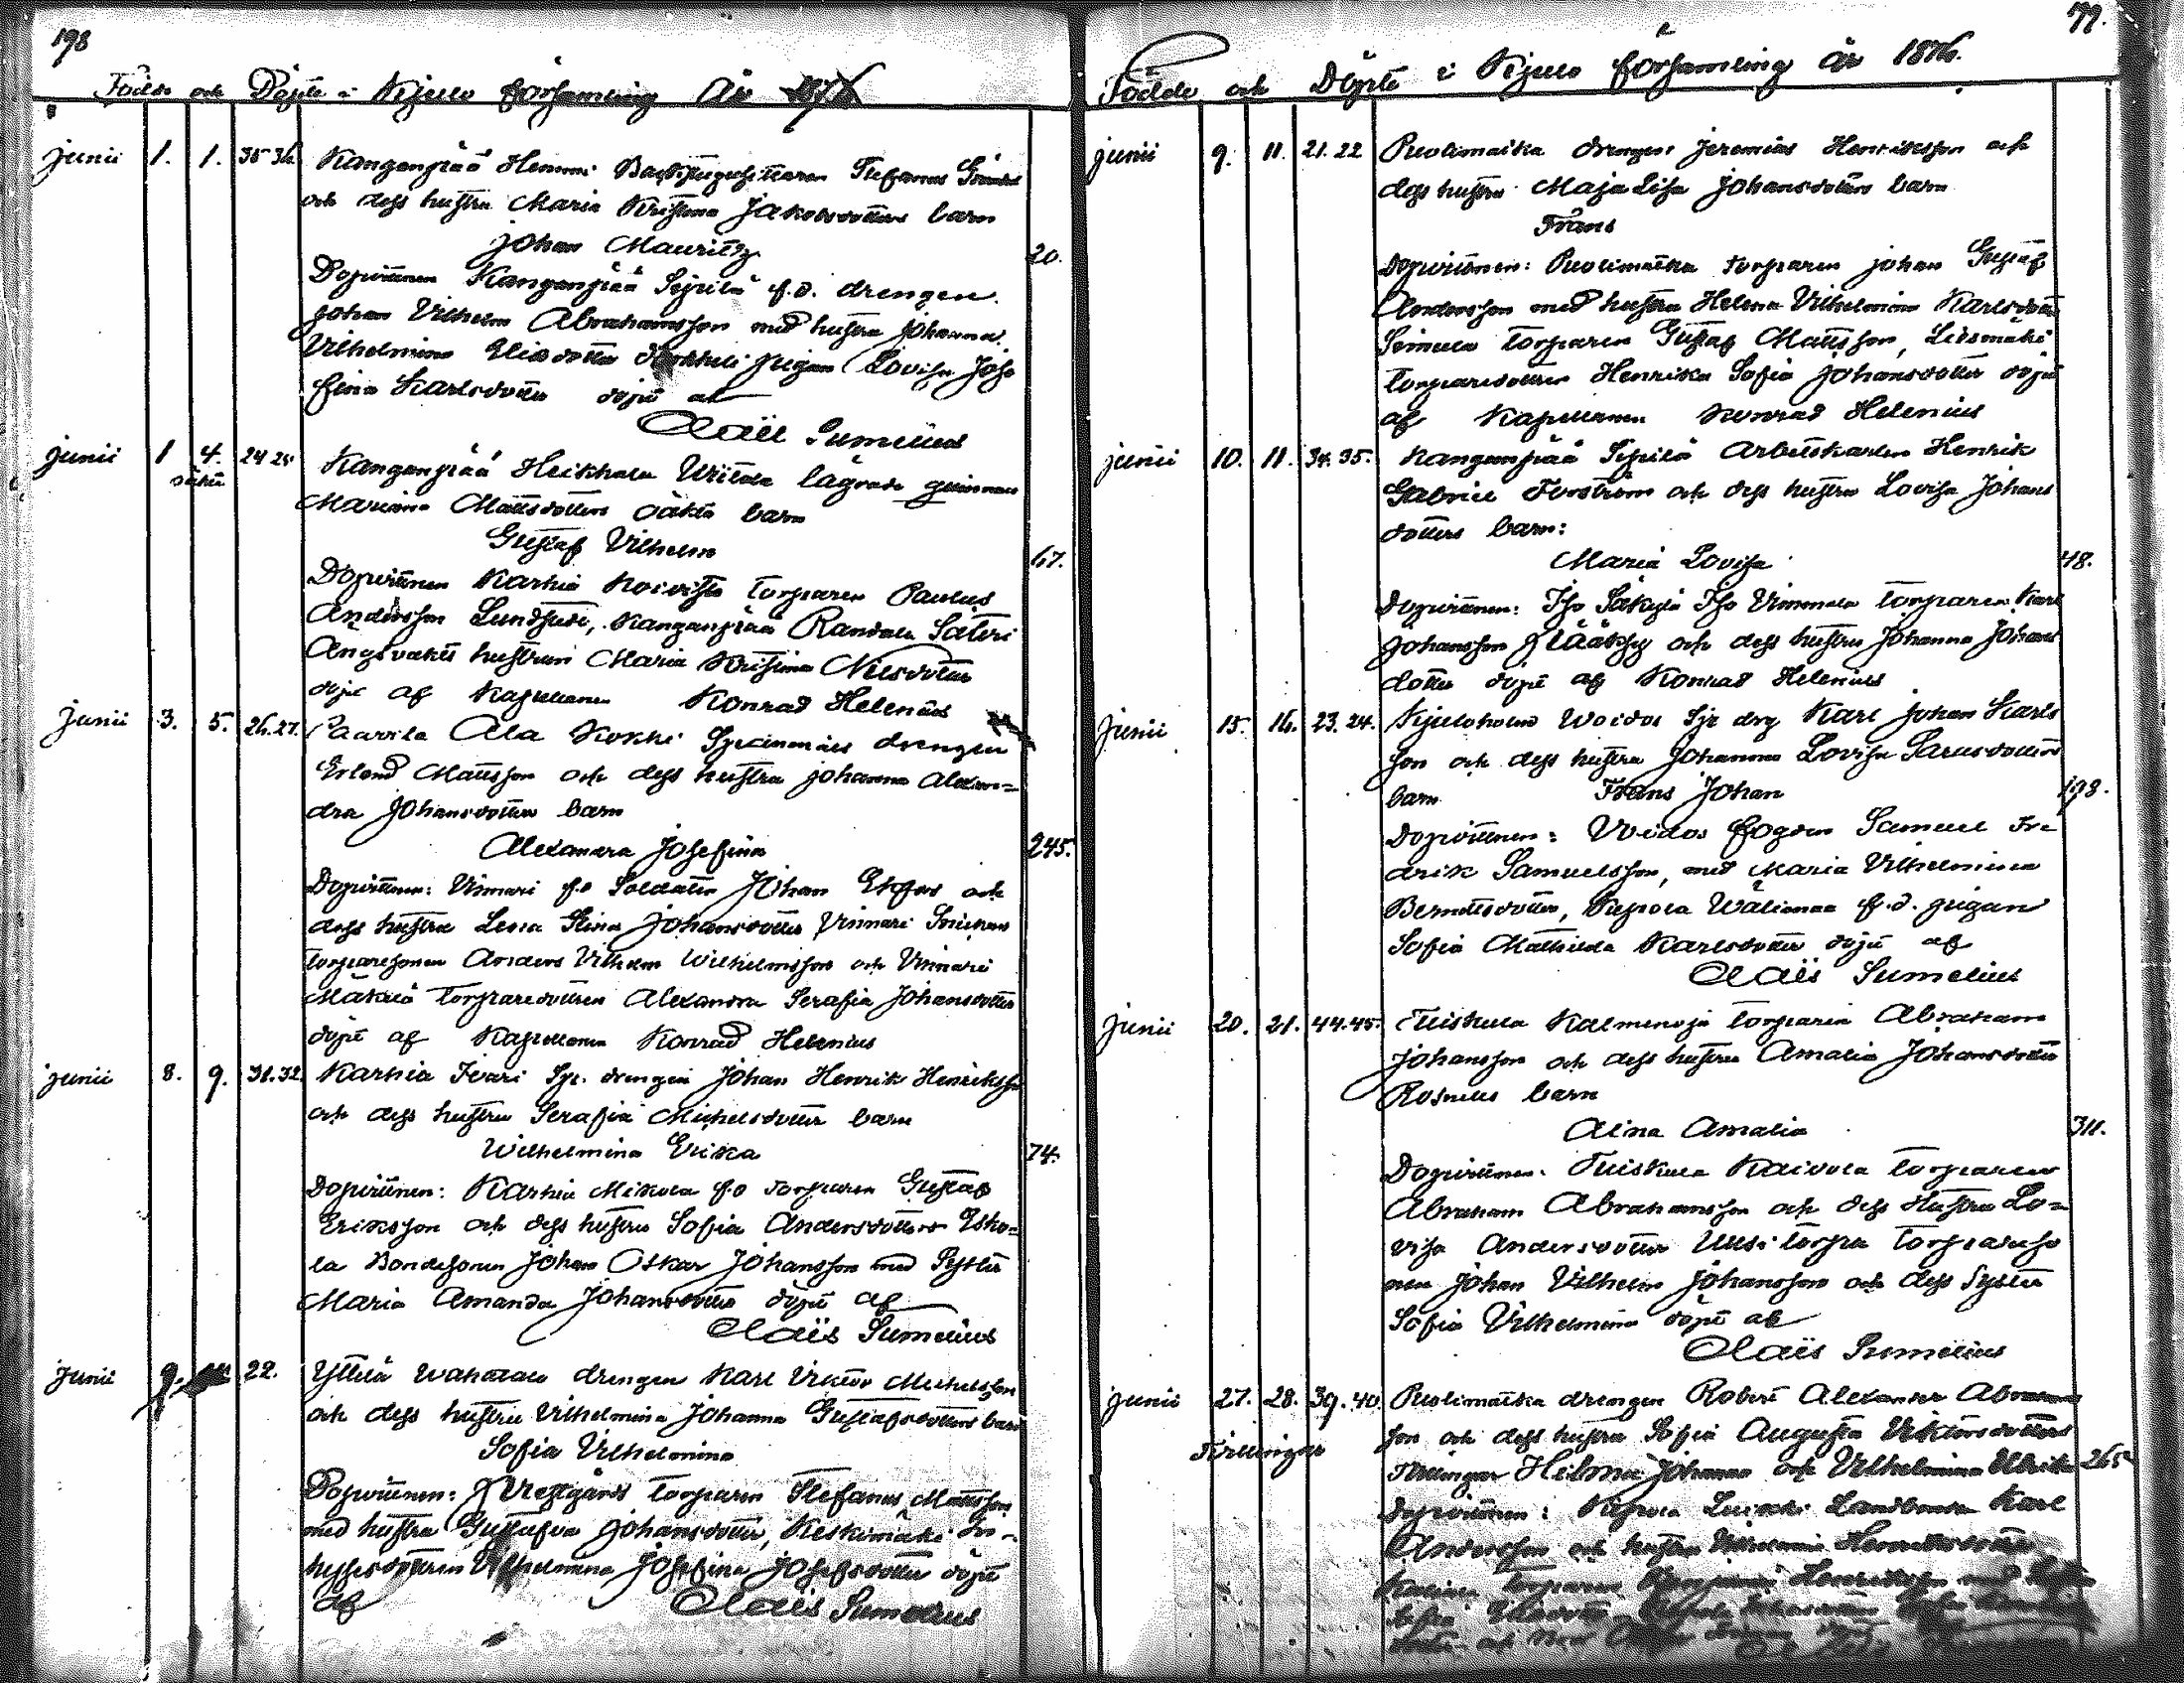 198
Födde och Döpte i Kjulo församling År 1876
junii 1. 1. 35 36. Kanganpää Hemmi Backstugusittaren Stefanus
och dess hustru Maria Kristina Jakobsdotters barn
Johan Mauritz 20.
Dopvittnen Kanganpää Seppilä f.d. drengen
Johan Vilhelm Abrahamsson med hustru Johanna
Vilhelmina Eliedotter pigan Lovisa Jose
fina Karlsdotter döpt af
Claës Sumelius
junii 1 4. 24 25 Kanganpää Heikkala lägrade qvinnan
oäkta
Mariana Mattsdotters oäkta barn
Gustaf Vilhelm 67.
Dopvittnen Karhia Koivisto torparen Paulus
Andersson Lundsjudi, Kanganpää Randala Säteri
Ängsvakts hustrun Maria Kristina Nilsdotter
döpt af Kapellanen Konrad Helenius
junii 3. 5. 26.27. Paavila Ala Kokki drengen
Erland Mattsson och dess hustru Johanna Alexan=
dra Johansdotters barn
Alexandra Josefina 245.
Dopvittnen: Vinnari f.d Soldaten Johan Ekfors och
dess hustru Lena Stina Johansdotter Vinnari
torparesonen Anders Vilhelm Wilhelmsson och Vinnari
Mäkelä torparedottren Alexandra Serafia Johansdotter
döpt af Kapellanen Konrad Helenius
junii 8. 9. 31.32. Karhia Iivari Spr. drengen Johan Henrik Henriksson
och dess hustru Serafia Michelsdotter barn
Wilhelmina Erika 74.
Dopvittnen: Karhia Mikola f.d torparen Gustaf
Eriksson och dess hustru Sofia Andersdotter Esko=
la Bondesonen Johan Oskar Johansson med Syster
Maria Amanda Johansdotter döpt af
Claës Sumelius
junii 9. 22. Yttilä drengen Karl Viktor Michelsson
och dess hustru Vilhelmina Johanna Gustafsdotters barn
Sofia Vilhelmina
Dopvittnen: torparen Stefanus Mattsson
med hustru Gustafva Johansdotter, Keskimäki In-
hysesdottren Vilhelmina Josefina Josefsdotter döpt
af Claës Sumelius
79.
Födde och Döpte i Kjulo församling år 1876.
junii 9. 11. 21. 22 Puolimatka drengen Jeremias Henriksson och
dess hustru Maja Lisa Johansdotters barn
Frans
Dopvittnen: Puolimatka torparen Johan Gustaf
Andersson med hustru Helena Vilhelmina Karlsdotter
torparen Gustaf Mattsson,
torparedottren Henrika Sofia Johansdotter döpt
af Kapellanen Konrad Helenius
junii 10. 11. 34. 35. Kanganpää Seppilä Arbetskarlen Henrik
Gabriel Forström och dess hustru Lovisa Johans
dotters barn:
Maria Lovisa 48.
Dopvittnen: Iso Säkylä Iso Vimmala torparen Karl
Johansson Plääthy och dess hustru Johanna Johans
dotter döpt af Konrad Helenius
junii 15. 16. 23. 24. Kjuloholm Woidos Spr drg Karl Johan Karls
son och dess hustru Johanna Lovisa dotters
barn Frans Johan 198.
Dopvittnen: Voidos fogden Samuel Fre
drik Samuelsson, med Maria Vilhelmina
Berndtsdotter, Kepola Wälimaa f.d. pigan
Sofia Mathilda Karlsdotter döpt af
Claës Sumelius
junii 20. 21. 44.45. Tuiskula Kalmenoja torparen Abraham
Johansson och dess hustru Amalia Johansdotter
Rosnells barn
Aina Amalia 311.
Dopvittnen. Tuiskula Kaivola torparen
Abraham Abrahamsson och dess Hustru Lo=
visa Andersdotter Uusitorppa torpareso
nen Johan Vilhelm Johansson och dess Syster
Sofia Vilhelmina döpt af
Claës Sumelius
junii 27. 28. 39. 40. Puolimatka drengen Robert Alexander Abrahams
son och dess hustru Sofia Augusta Viktorsdotters
Tvillingar
Tvillingar Hilma Johanna och Vilhelmina Ulrika 265
Dopvittnen: Kepola Landbonden Karl
Andersson och hustru
torparen